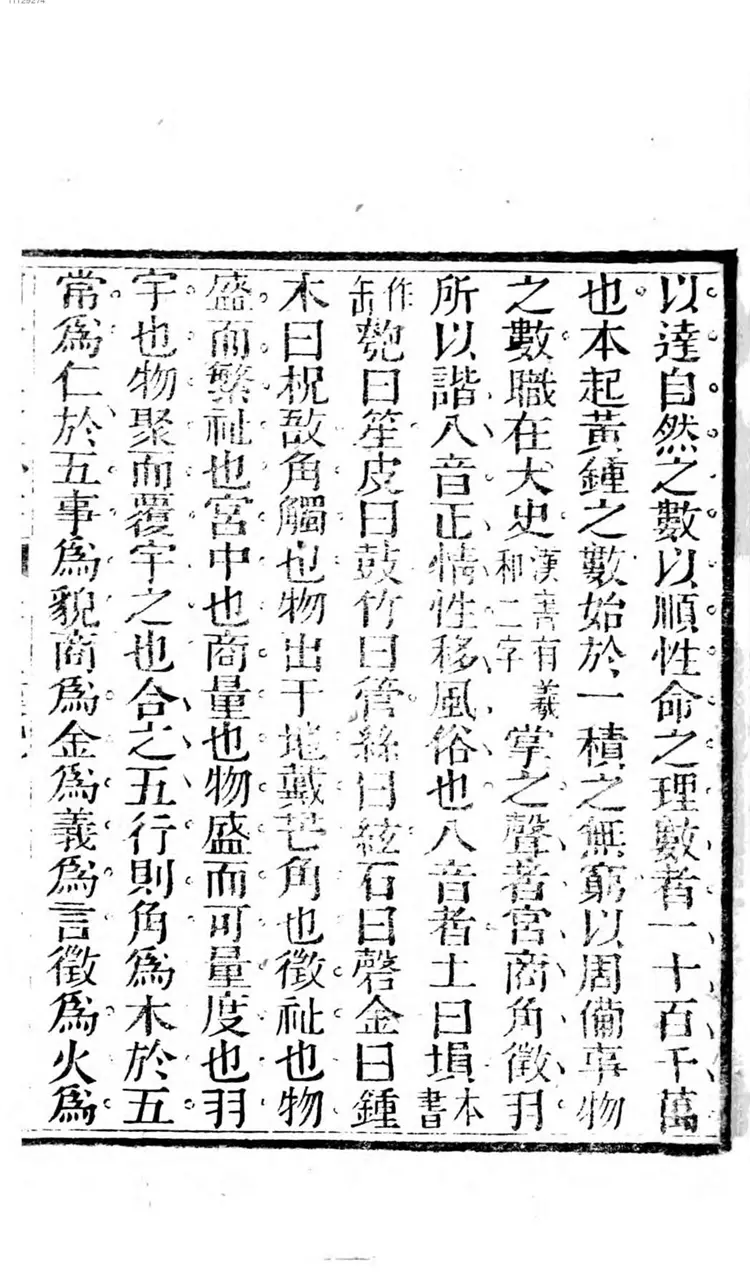 11129274
以達自然之數以順性命之理數者一十百千萬
也本起黃鍾之數始於一積之無窮以周備事物
之數職在大史漢書有羲和二字掌之聲者宮商角徵羽
所以諧八音正情性移風俗也八音者土曰塤本書
作缶匏曰笙皮曰鼓竹曰管絲曰絃石曰磬金曰鍾
木曰柷敔角觸也物出于地戴芒角也徵祉也物
盛而繁祉也宮中也商量也物盛而可量度也羽
宇也物聚而覆宇之也合之五行則角爲木於五
常爲仁於五事爲貌商爲金爲義爲言徵爲火爲